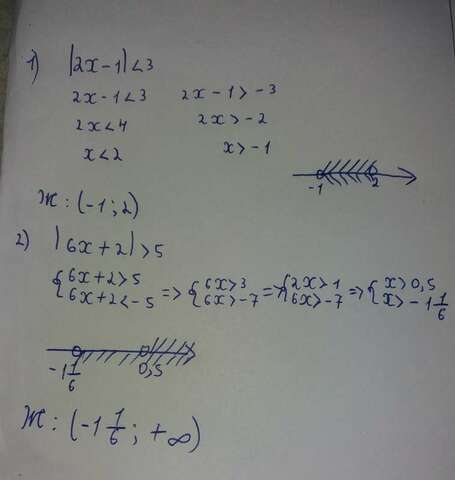 1) |2x-1|<3
2x-1<3 2x-1>-3
2x<4 2x>-2
x<2 x>-1
-1 2
Ж: (-1;2)
2) |6x+2|>5
{6x+2>5 6x+2<-5 => {6x>3 6x>-7 => {2x>1 6x>-7 => {x>0,5 x>-1 1/6
-1 1/6 0,5
Ж: (-1 1/6; +∞)